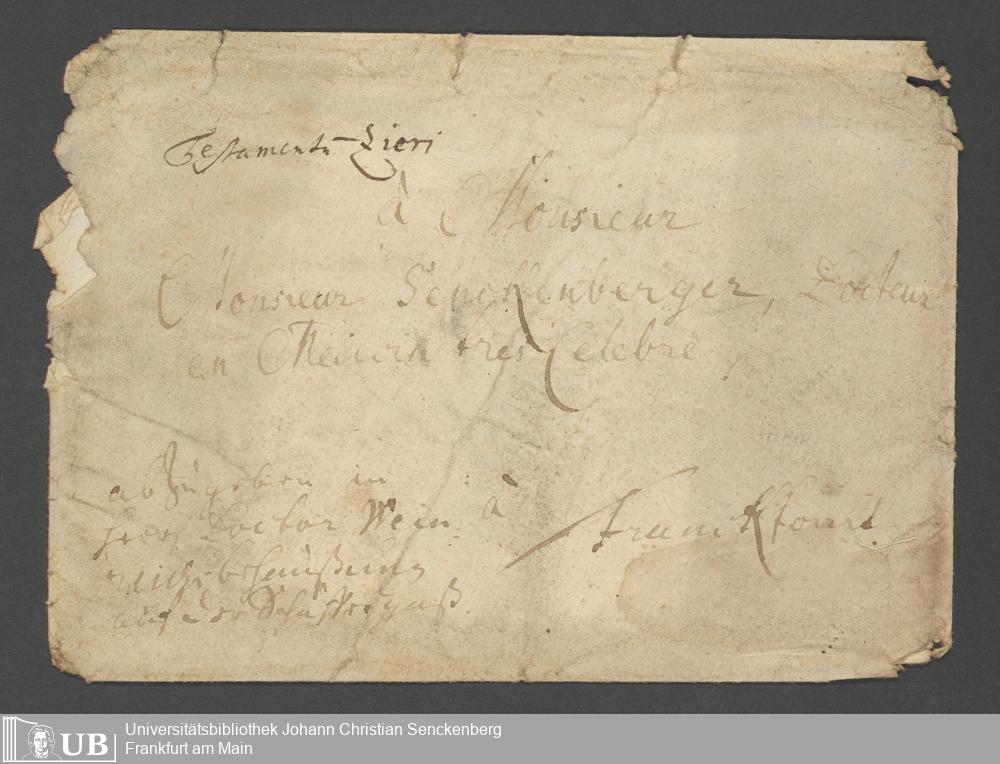 Testamentū Zieri
à Monsieur
Monsieur Senckenberger, Docteur
en Medicin tres Celebre
à Franckfourt
abzugeben in
Herr Doctor Wein
reichs behaußung
auf der Schäffergaß
UB Universitätsbibliothek Johann Christian Senckenberg
Frankfurt am Main